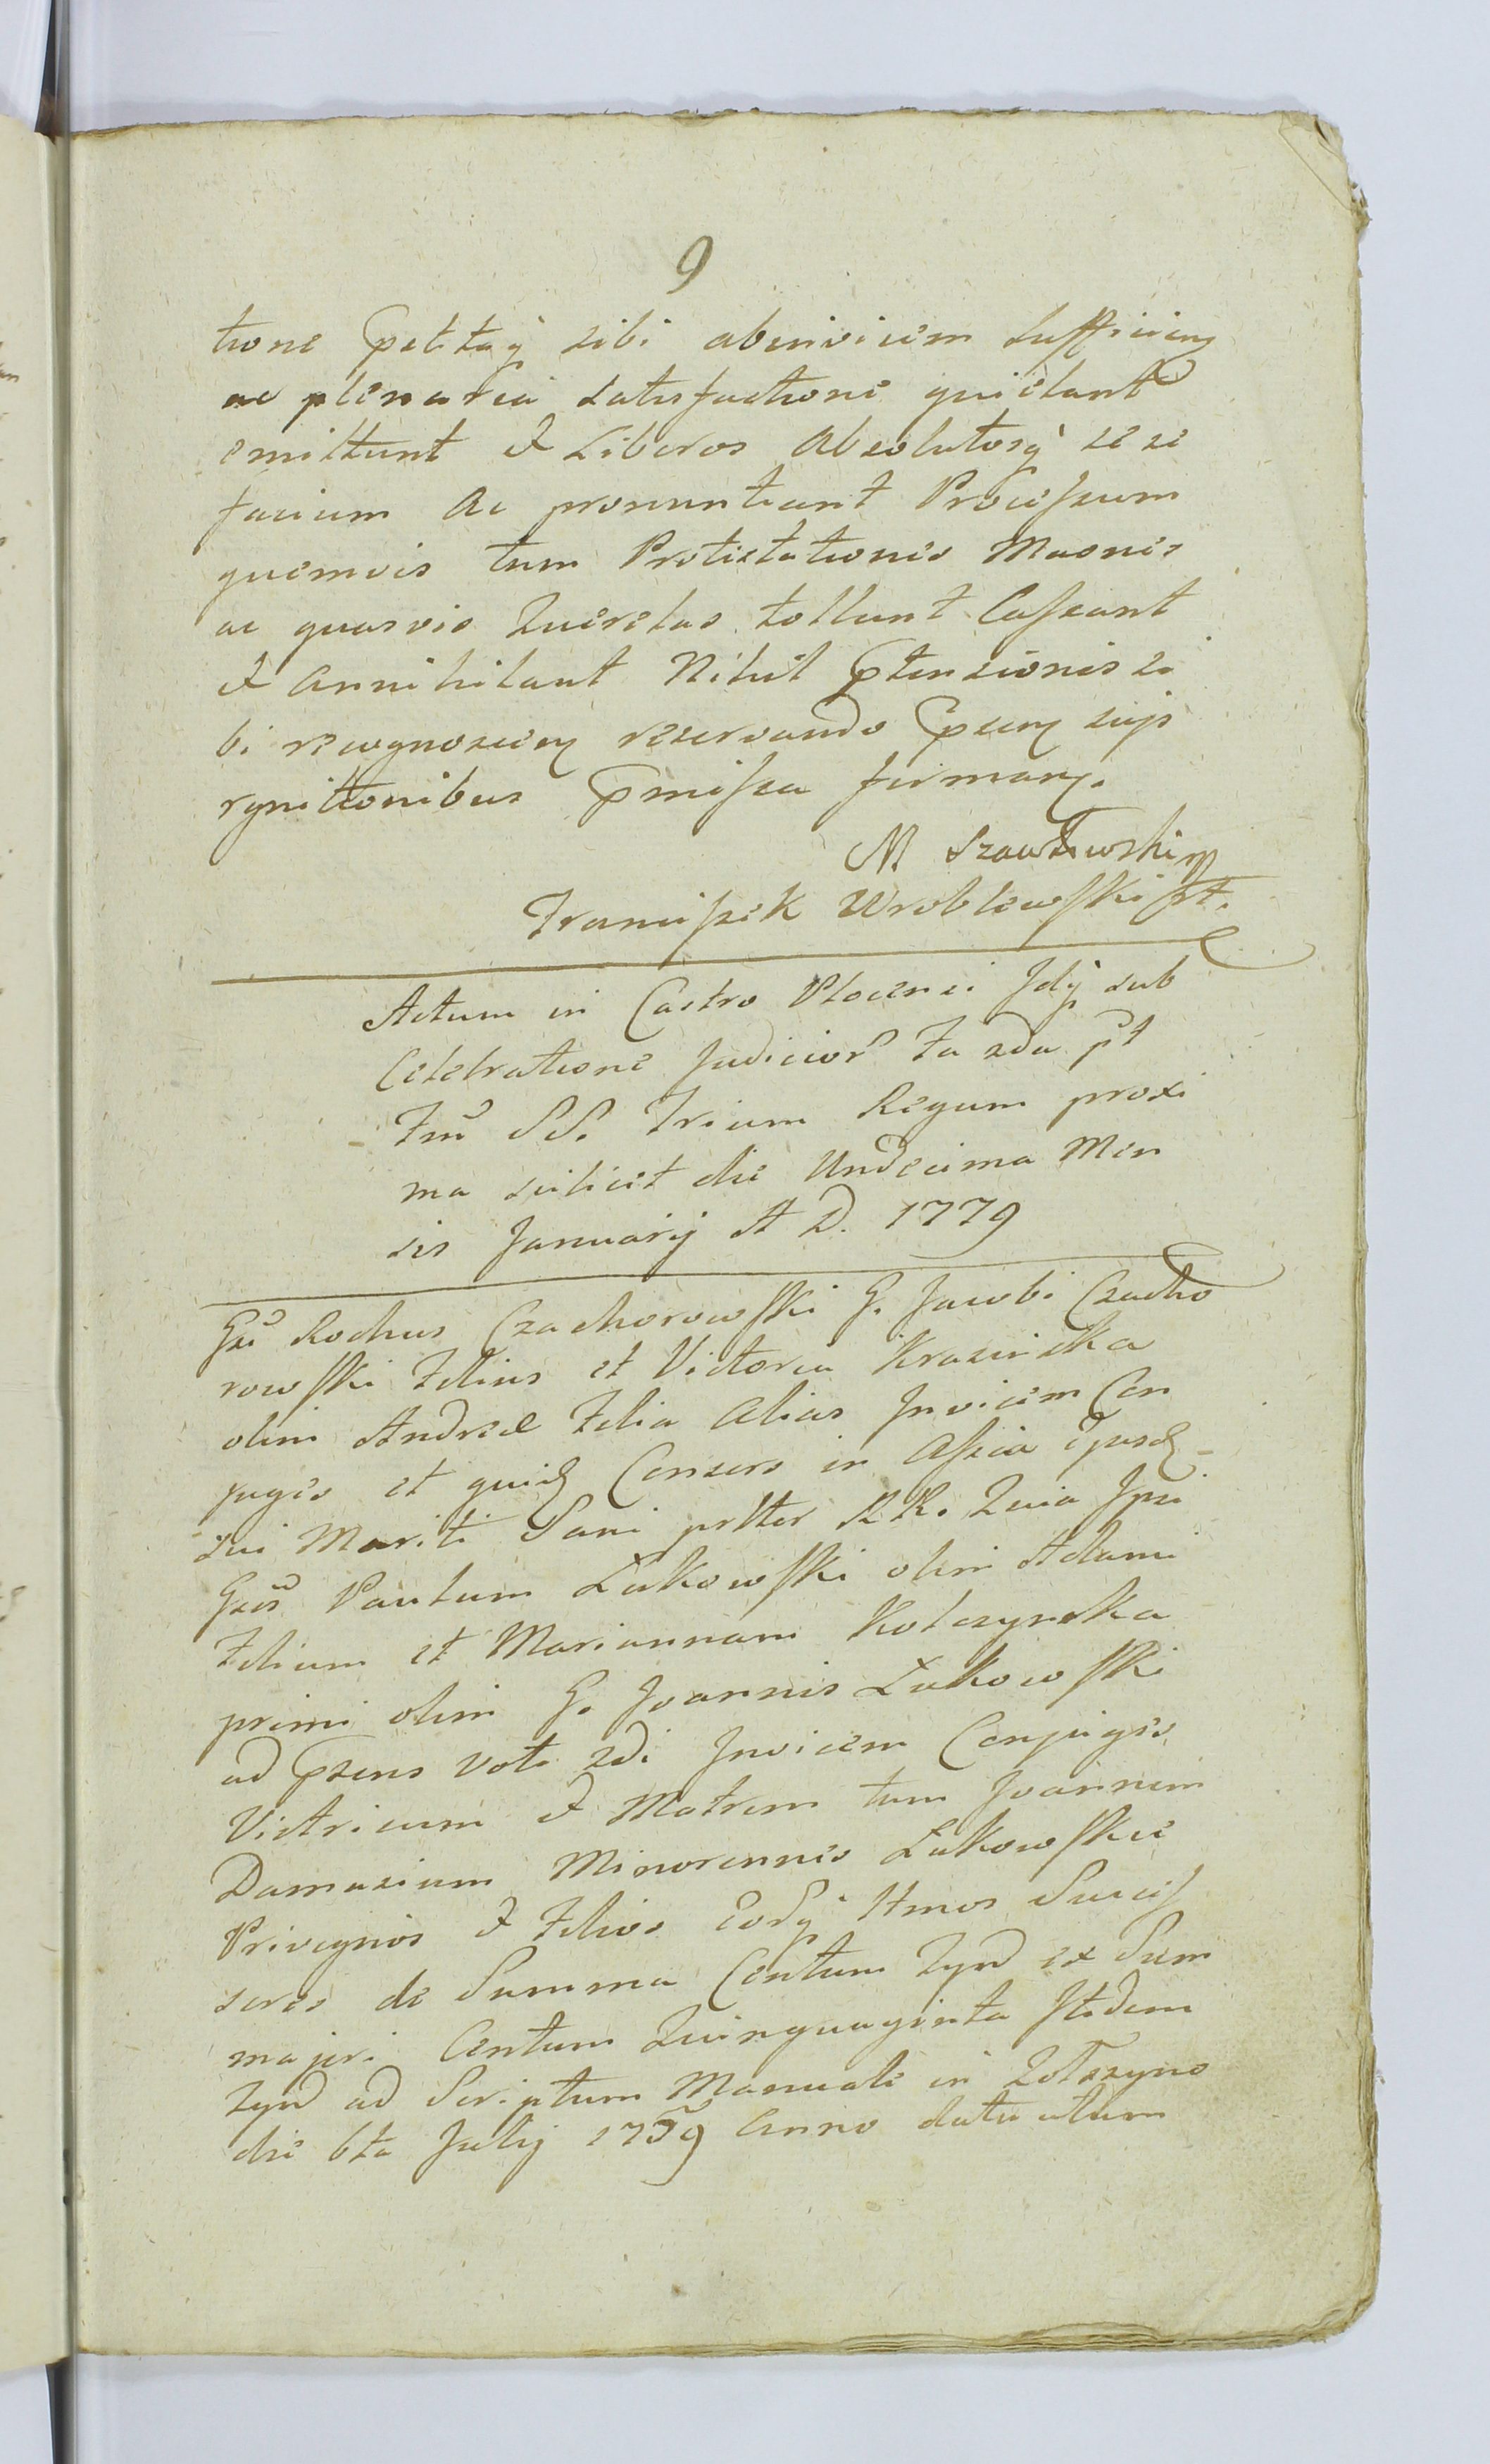 9
tione petitaq sibi abinvicem sufficien
ac plenaria satisfactione quietant
emittunt et Liberos absolutosq se se
faciunt ac pronuntiant Processum
quemvis tum Protestationes Maones
ac quasvis Querelas tollunt Cassant
et annihilant Nihil ptensionis si
bi recognoscen reservando psen suis
rgnitionibus pmissa firman.
M Szawłowski mp
Franciszek Wroblewski
Actum in Castro Plocensi Idq sub
Celebratione Judicior Fa 2da pt
Fm SS. Trium Regum proxi
ma scilicet die Undecima Men
sis Januarij A D. 1779
Gsi Rochus Czachorowski G. Jacobi Czacho
rowski Filius et Victoria Krasinska
olim Andreæ Filia alias Invicem Con
juges et quid Consors in assia ejusd
sui Mariti Sani prtter RR. Quia Ipsi
Gsos Paulum Łukowski olim Adami
Filium et Mariannam Kolczynska
primi olim G. Joannis Łukowski
ad psens voti 2di Invicem Conjuges
Victricum et Matrem tum Joannem
Damasium Minorennes Łukowskie
Privignos et Filios Eosdq Hmos Succes
sores de Summa Centum Zyd ex Sum
majori Centum Quinquaginta Itidem
Zyd ad Scriptum Manuale in
die 6ta Julij 1759 Anno datu